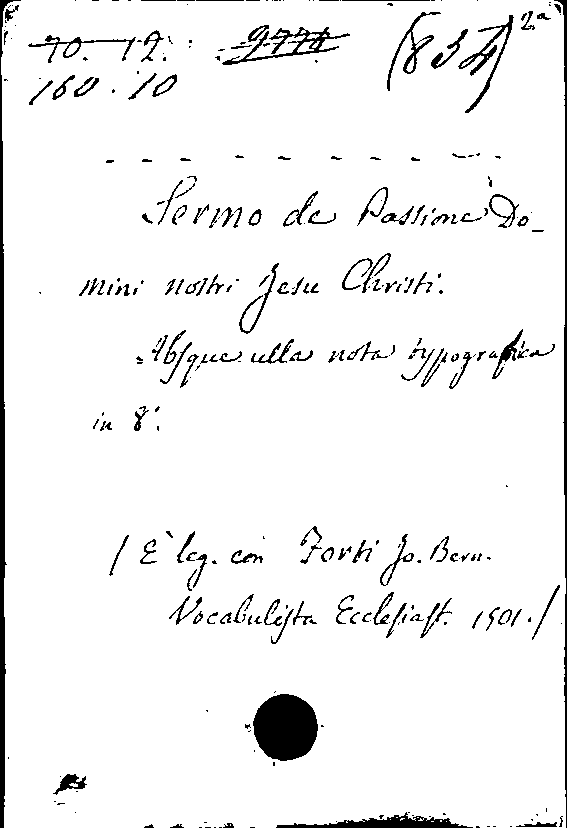 70. 12. 2774 (834) 2a
160. 10
Sermo de Passione Do-
mini nostri Jesu Christi.
Absque ulla nota typografica
in 8°.
/ È leg. con Forti Jo. Bern.
Vocabulista Ecclesiast. 1501. /